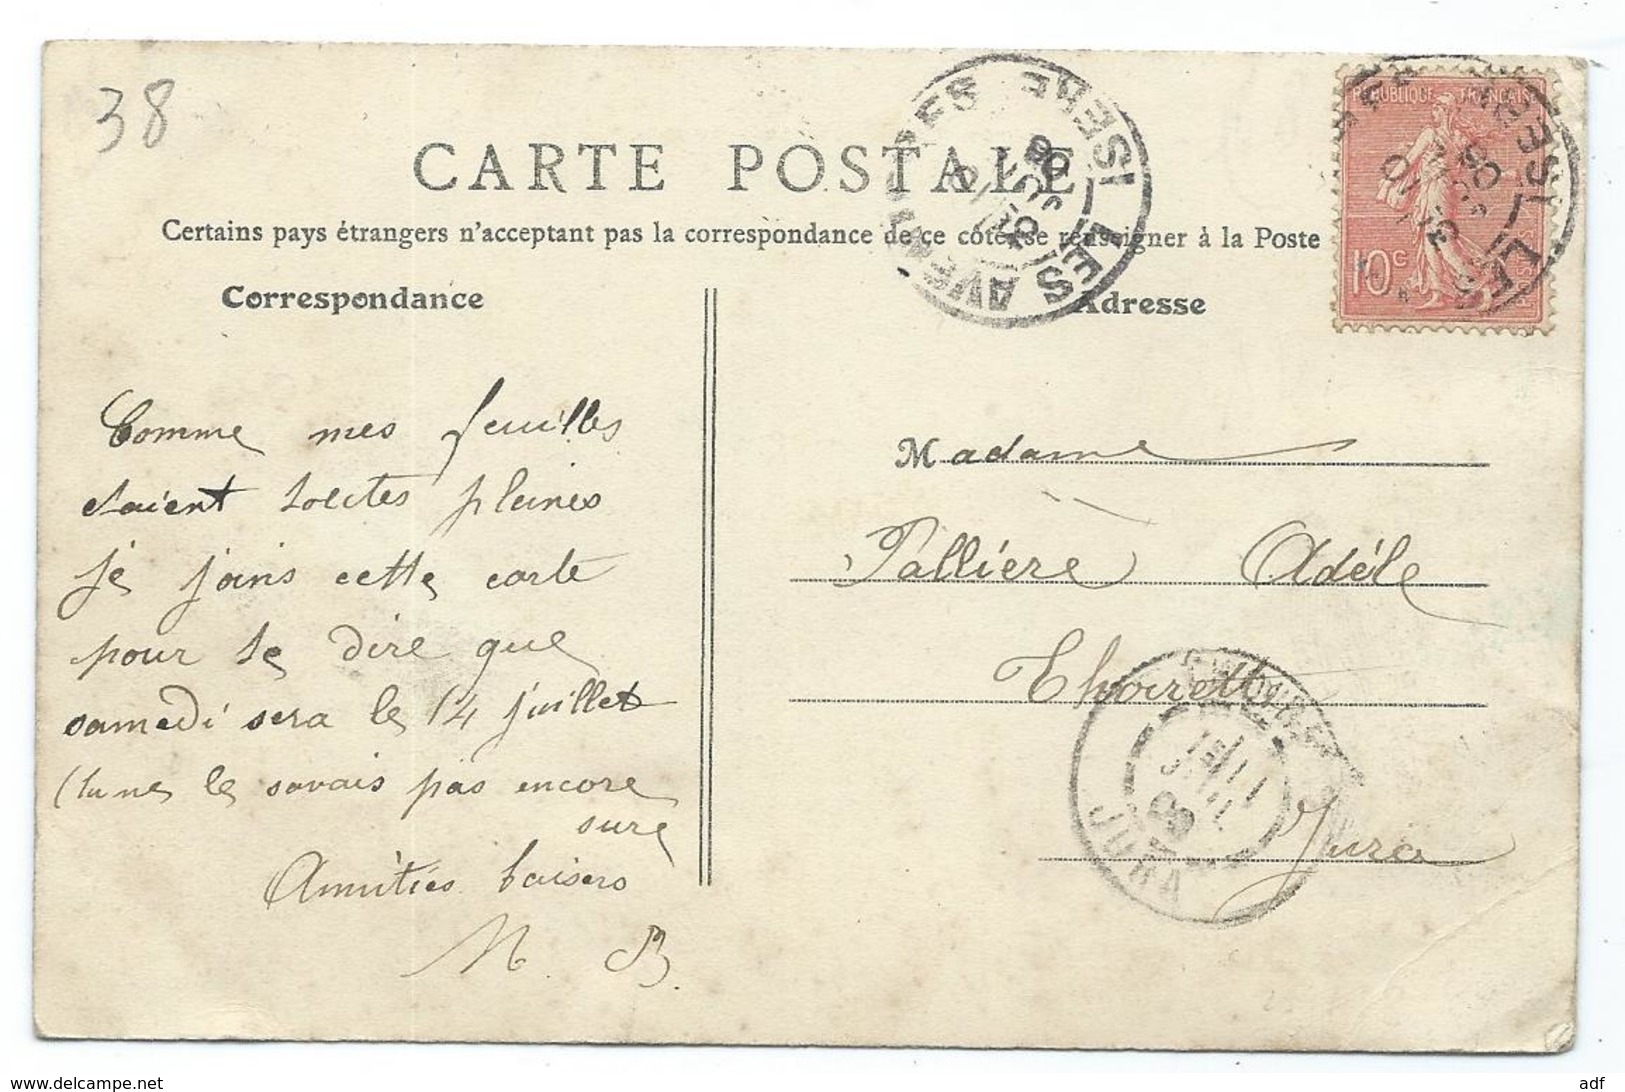 38
CARTE POSTALE
Certains pays étrangers n'acceptant pas la correspondance de ce côté, se renseigner à la Poste
Correspondance
Adresse
REPUBLIQUE FRANÇAISE
10c
LES AVENIERES ISERE
Comme mes feuilles
étaient toutes pleines
je joins cette carte
pour te dire que
samedi sera le 14 juillet
(tu ne le savais pas encore
sure
Amitiés baisers
M. B.
Madame
Pallière Adèle
Thoirette
Jura
JURA
adf